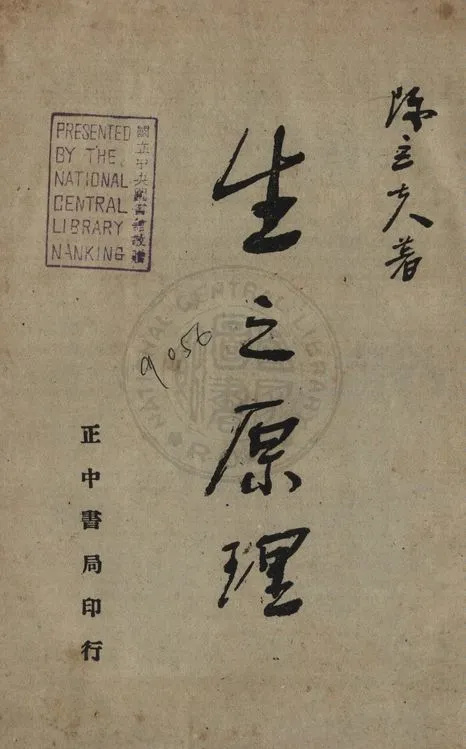 陳立夫著
生之原理
正中書局印行
PRESENTED
BY THE
NATIONAL
CENTRAL
LIBRARY
NANKING
國立中央圖書館敬贈
9056
NATIONAL CENTRAL LIBRARY